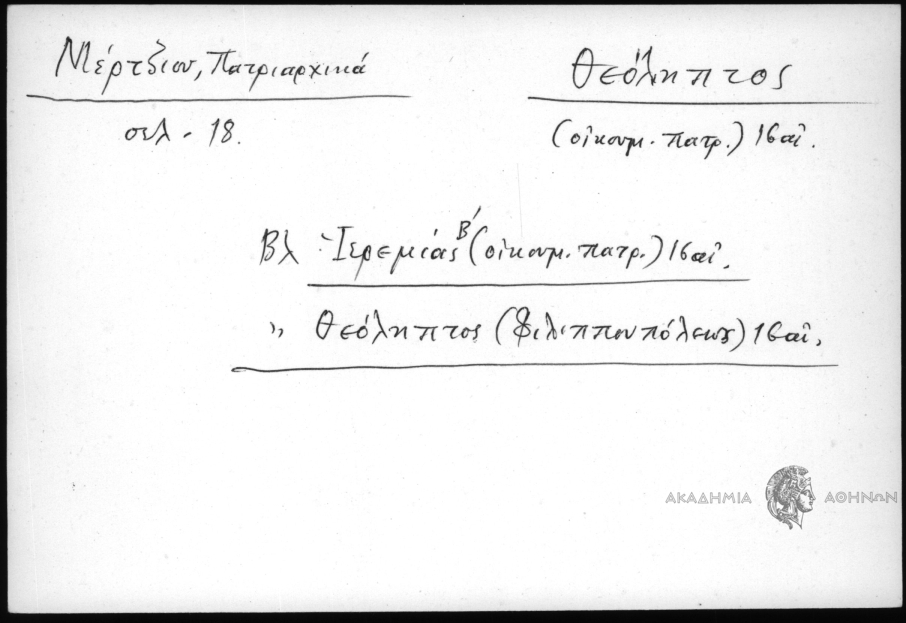 Μέρτζιου, Πατριαρχικά
σελ. 18.
Θεόληπτος
(οἰκουμ. πατρ.) 16 αἰ.
Βλ Ἰερεμίας Β΄ (οἰκουμ. πατρ.) 16 αἰ.
〃 Θεόληπτος (Φιλιππουπόλεως) 16 αἰ.
ΑΚΑΔΗΜΙΑ ΑΘΗΝΩΝ